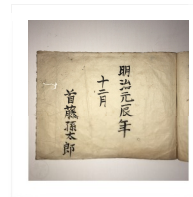 明治元辰年
十二月
首藤孫太郎